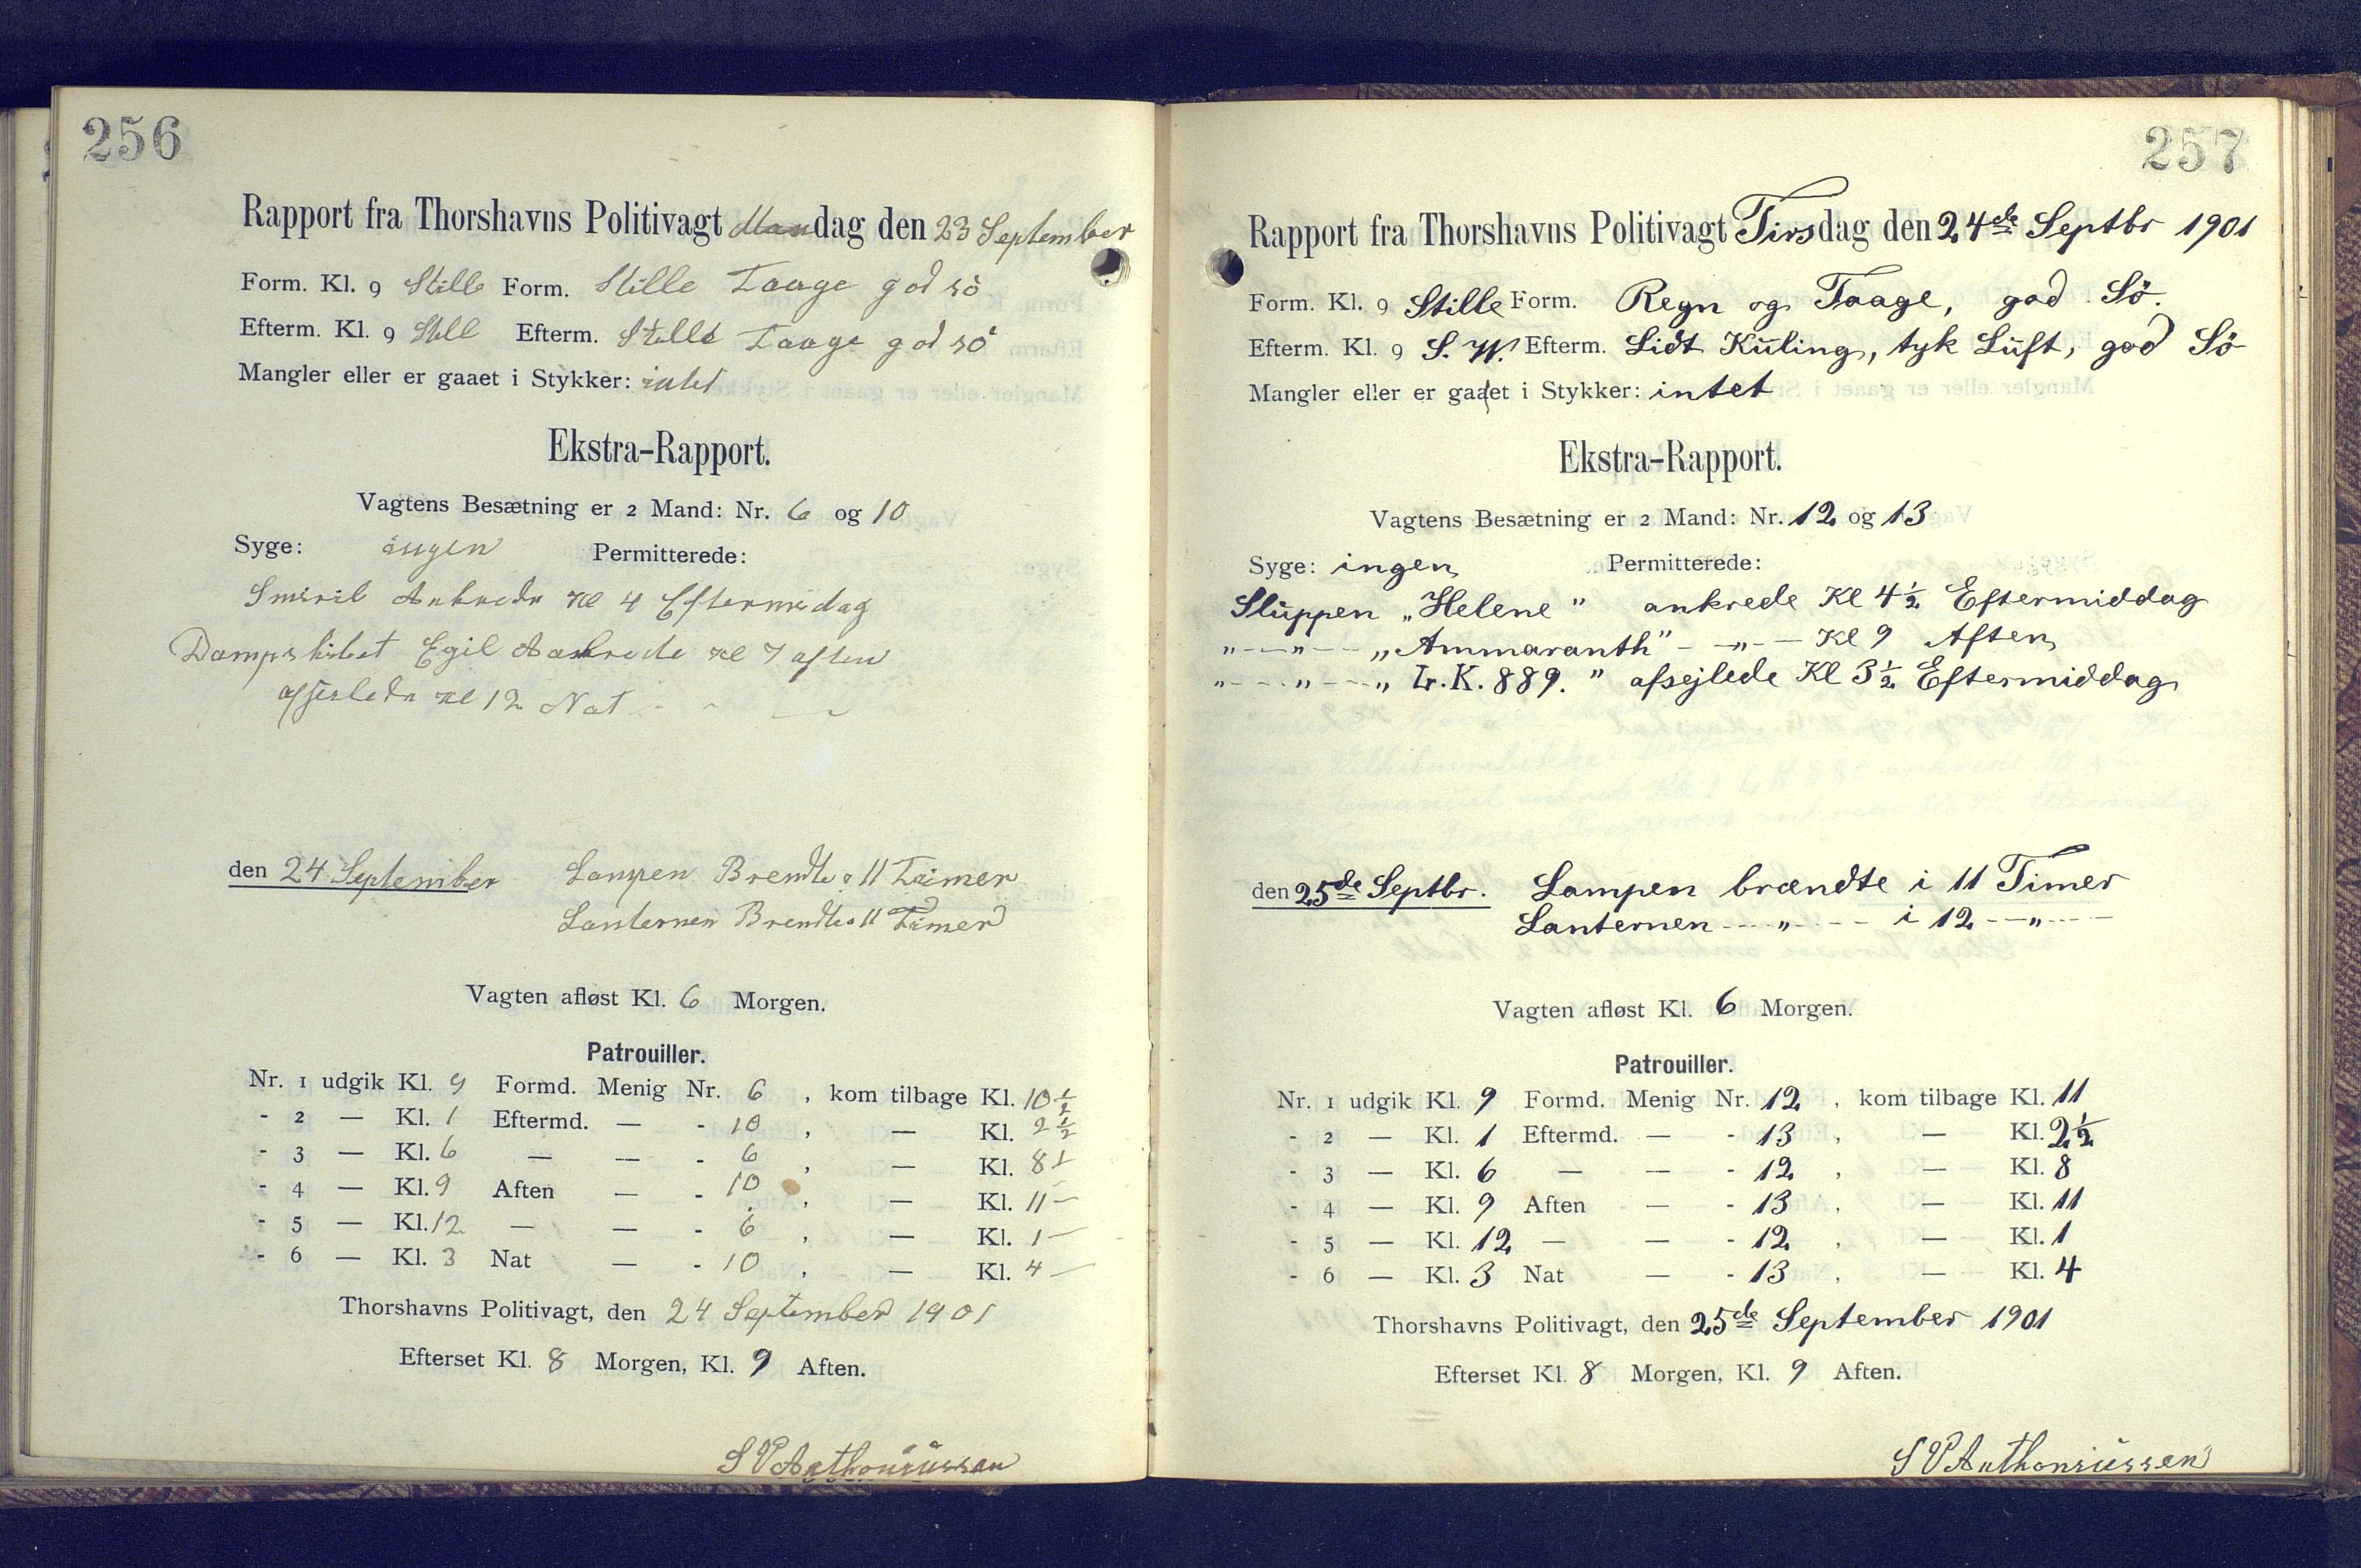 256
Rapport fra Thorshavns Politivagt Mandag den 23 September
Form. Kl. 9 Stille Form. Stille Taage god sö
Efterm. Kl. 9 Stell Efterm. Stille Taage god sö
Mangler eller er gaaet i Stykker: intet
Ekstra-Rapport.
Vagtens Besætning er 2 Mand: Nr. 6 og 10
Syge: ingen Permitterede:
Smiril Ankrede Kl 4 Eftermedag
Dampskibet Egil Aankrede Kl 7 aften
afseilede Kl 12 Nat
den 24 September Lampen Brendte 11 Timer
Lanternen Brendte 11 Timer
Vagten afløst Kl. 6 Morgen.
Patrouiller.
Nr. 1 udgik Kl. 9 Formd. Menig Nr. 6, kom tilbage Kl. 10 1/2
- 2 — Kl. 1 Eftermd. — - 10, — Kl. 2 1/2
- 3 — Kl. 6 — — - 6, — Kl. 8
- 4 — Kl. 9 Aften — - 10, — Kl. 11 —
- 5 — Kl. 12 — — - 6, — Kl. 1 —
- 6 — Kl. 3 Nat — - 10, — Kl. 4 —
Thorshavns Politivagt, den 24 September 1901
Efterset Kl. 8 Morgen, Kl. 9 Aften.
S V Anthoniussen
257
Rapport fra Thorshavns Politivagt Tirsdag den 24de Septbr 1901
Form. Kl. 9 Stille Form. Regn og Taage, god Sö.
Efterm. Kl. 9 S. W. Efterm. Lidt Kŭling, tyk Lŭft, god Sö
Mangler eller er gaaet i Stykker: intet
Ekstra-Rapport.
Vagtens Besætning er 2 Mand: Nr. 12 og 13
Syge: ingen Permitterede:
Slŭppen „Helene" ankrede Kl 4 1/2 Eftermiddag
" — " — „Ammaranth" — " — Kl 9 Aften
" — " — „Lr. K. 889." afsejlede Kl 3 1/2 Eftermiddag
den 25de Septbr. Lampen brændte i 11 Timer
Lanternen — " — i 12 — " —
Vagten afløst Kl. 6 Morgen.
Patrouiller.
Nr. 1 udgik Kl. 9 Formd. Menig Nr. 12, kom tilbage Kl. 11
- 2 — Kl. 1 Eftermd. — - 13, — Kl. 2 1/2
- 3 — Kl. 6 — — - 12, — Kl. 8
- 4 — Kl. 9 Aften — - 13, — Kl. 11
- 5 — Kl. 12 — — - 12, — Kl. 1
- 6 — Kl. 3 Nat — - 13, — Kl. 4
Thorshavns Politivagt, den 25de September 1901
Efterset Kl. 8 Morgen, Kl. 9 Aften.
S V Anthoniussen